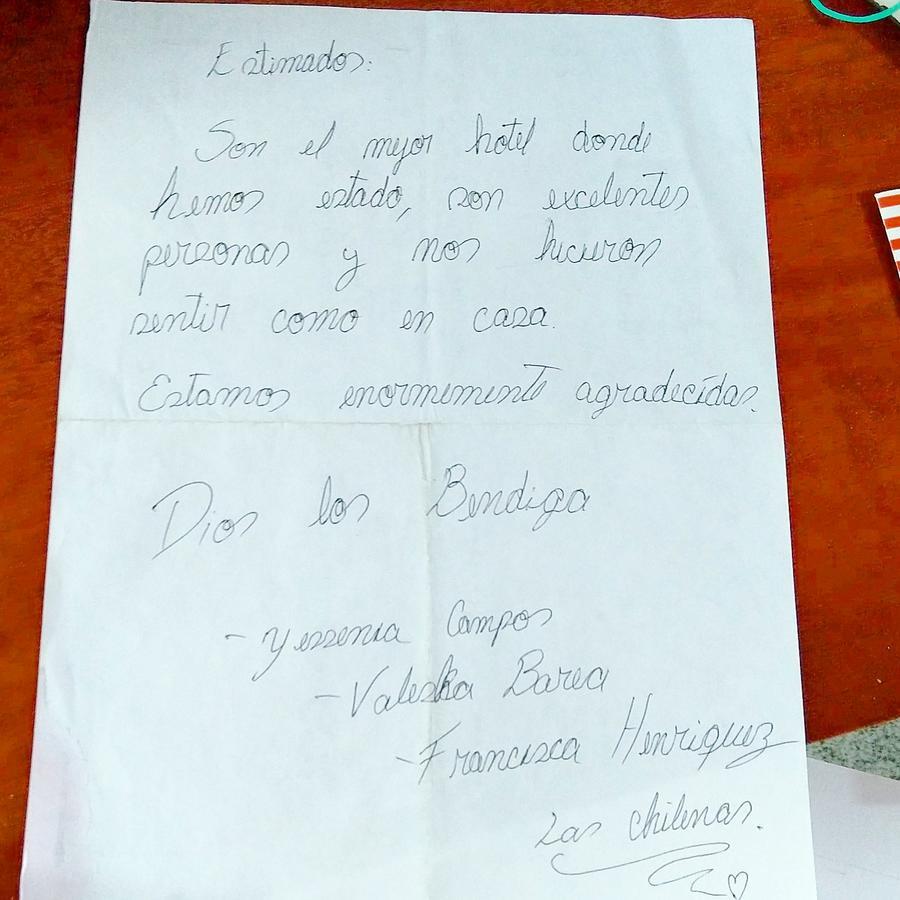 Estimados:
Son el mejor hotel donde
hemos estado, son excelentes
personas y nos hicieron
sentir como en casa.
Estamos enormemente agradecidas.
Dios los Bendiga
- Yessenia Campos
- Valeska Barea
- Francisca Henriquez
Las chilenas.